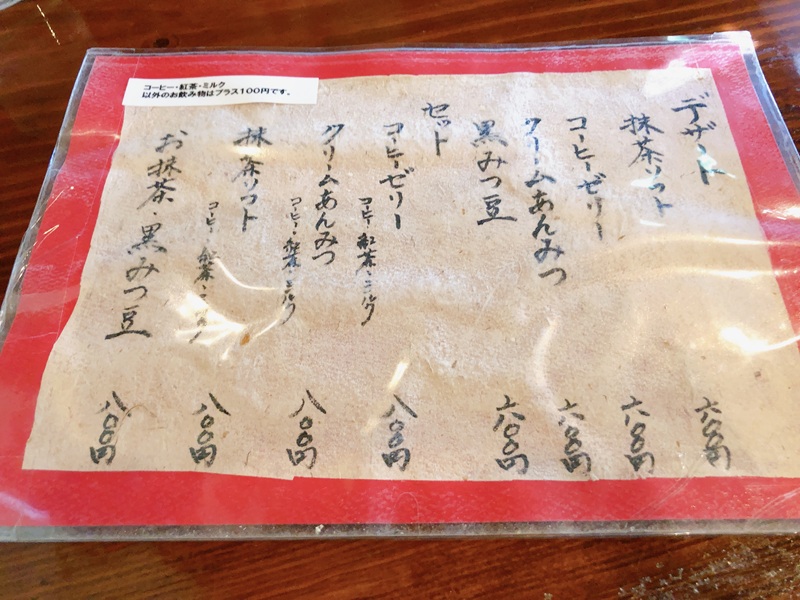 コーヒー・紅茶・ミルク
以外のお飲み物はプラス100円です。
デザート
抹茶ソフト 六〇〇円
コーヒーゼリー 六〇〇円
クリームあんみつ 六〇〇円
黒みつ豆 六〇〇円
セット
コーヒーゼリー
コーヒー・紅茶・ミルク 八〇〇円
クリームあんみつ
コーヒー・紅茶・ミルク 八〇〇円
抹茶ソフト
コーヒー・紅茶・ミルク 八〇〇円
お抹茶・黒みつ豆 八〇〇円